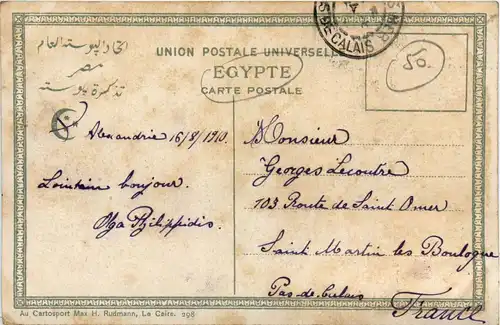 اتحاد البوستة العام
مصر
تذكرة بوستة
UNION POSTALE UNIVERSELLE
EGYPTE
CARTE POSTALE
PAS-DE-CALAIS
50.
Alexandrie 16/8/1910.
Lointain bonjour.
Olga Philippidis.
Monsieur
Georges Lecoutre
103 Route de Saint Omer
Saint Martin les Boulogne
Pas-de-Calais
France
Au Cartosport Max H. Rudmann, Le Caire. 298